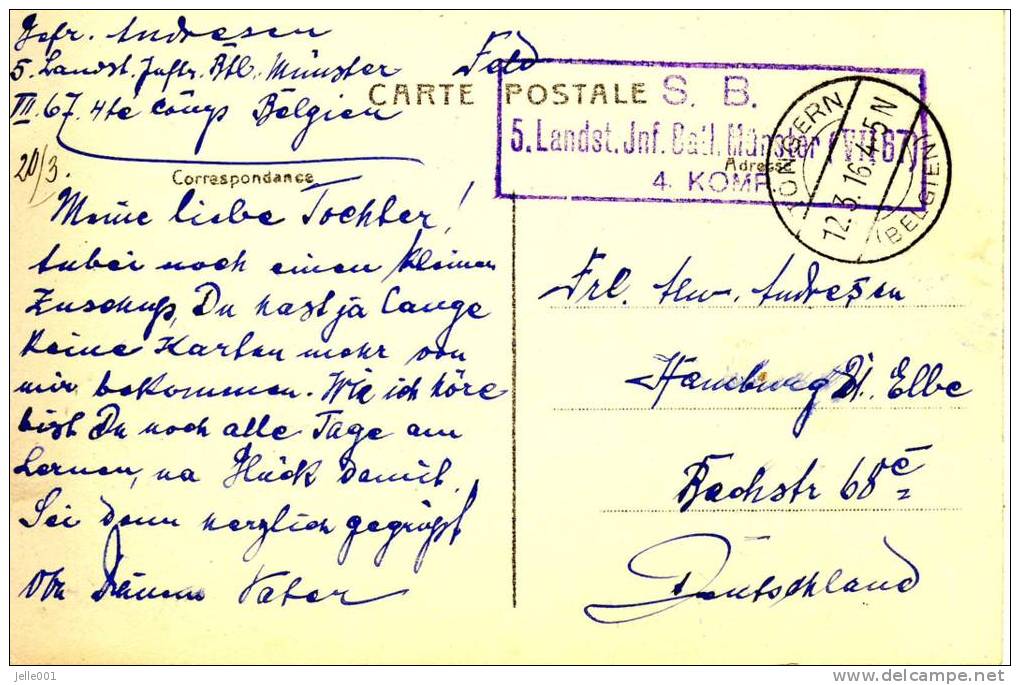 Gefr. Andresen
5. Landst. Inftr. Btl. Münster
III. 67. 4te Comp Belgien
Feld
CARTE POSTALE
S. B.
5. Landst. Inf. Batl. Münster (VII 67)
4. KOMP.
TONGERN
12.3.16. 4-5 N
(BELGIEN)
20/3.
Correspondance
Adresse
Meine liebe Tochter!
Anbei noch einen kleinen
Zuschuß, Du hast ja lange
keine Karten mehr von
mir bekommen. Wie ich höre
bist Du noch alle Tage am
Lernen, na Glück damit.
Sei denn herzlich gegrüßt
von Deinem Vater
Frl. Andresen
Hamburg 21. Elbe
Bachstr 68c
Deutschland
jelle001
delcampe.net